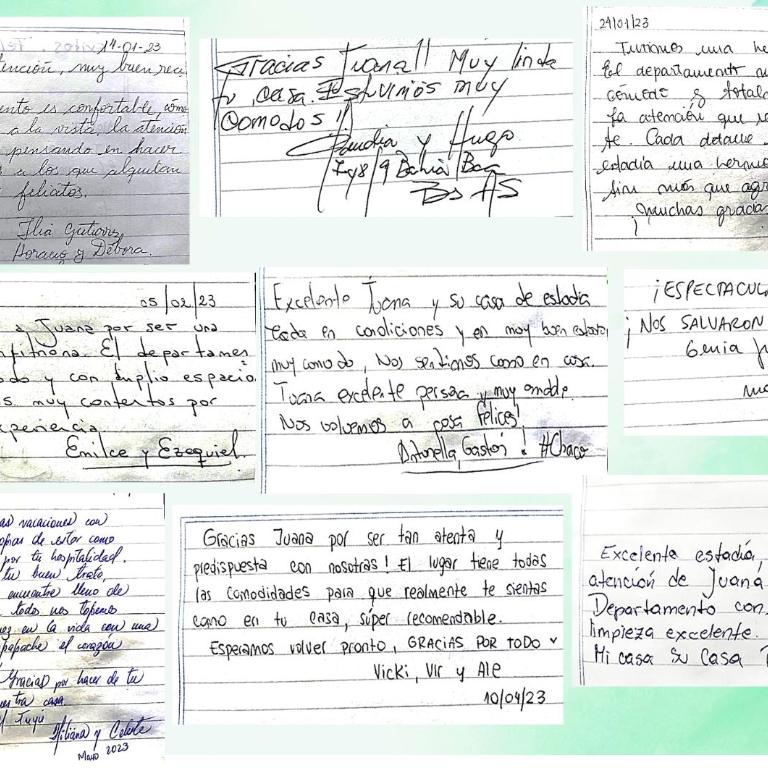 14-01-23
atención, muy buen reci
ento es confortable como
a la vista, la atención
pensando en hacer
a los que alquilan
felicitos.
Ilia Gutierrez
Horacio y Débora.
Gracias Juana!! Muy linda
tu casa. Estuvimos muy
comodos!!
Claudia y Hugo
7 y 8/9 Bahia Bca
Bs AS
29/01/23
Tuvimos una he
El departamento
cómodo y total
la atención que re
te. Cada detalle
estadía una hermo
Sin más que agr
¡Muchas gracias
05/02/23
a Juana por ser una
nfitriona. El departamen
odo y con amplio espacio.
s muy contentos por
xperiencia
Emilce y Ezequiel.
Excelente Juana y su casa de estadia
toda en condiciones y en muy buen estado
muy comodo, Nos sentimos como en casa.
Juana excelente persona y muy amable.
Nos volvemos a casa felices!
Antonella, Gastón! #Chaco
¡ESPECTACUL
¡NOS SALVARON
Genia Ju
as vacaciones con
opias de estar como
por tu hospitalidad.
tu buen trato,
encuentre lleno de
todos nos topemos
vez en la vida con una
papache el corazón
Gracias por hacer de tu
estra casa.
Tuyú
Liliana y Celeste
Mayo 2023
Gracias Juana por ser tan atenta y
predispuesta con nosotras! El lugar tiene todas
las comodidades para que realmente te sientas
como en tu casa, súper recomendable.
Esperamos volver pronto, GRACIAS POR TODO
Vicki, Vir y Ale
10/04/23
Excelente estadía,
atención de Juana
Departamento con
limpieza excelente.
Mi casa su casa